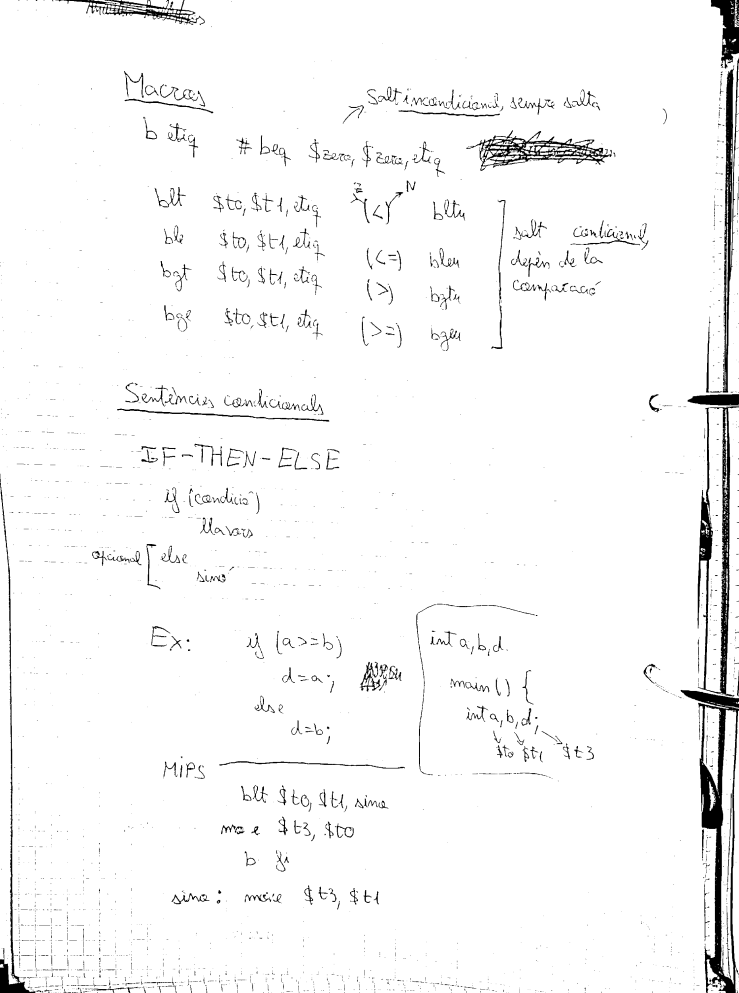 Macros
Salt incondicional, sempre salta
b etiq # beq $zero, $zero, etiq
blt $t0, $t1, etiq (<) bltu
Z N
ble $t0, $t1, etiq (<=) bleu
bgt $t0, $t1, etiq (>) bgtu
bge $t0, $t1, etiq (>=) bgeu
salt condicional,
depèn de la
comparació
Sentències condicionals
IF-THEN-ELSE
if (condició)
llavors
opcional [ else
sinó
Ex: if (a>=b)
d=a;
else
d=b;
int a,b,d
main() {
int a,b,d;
$t0 $t1 $t3
MIPS
blt $t0, $t1, sino
move $t3, $t0
b fi
sino: move $t3, $t1